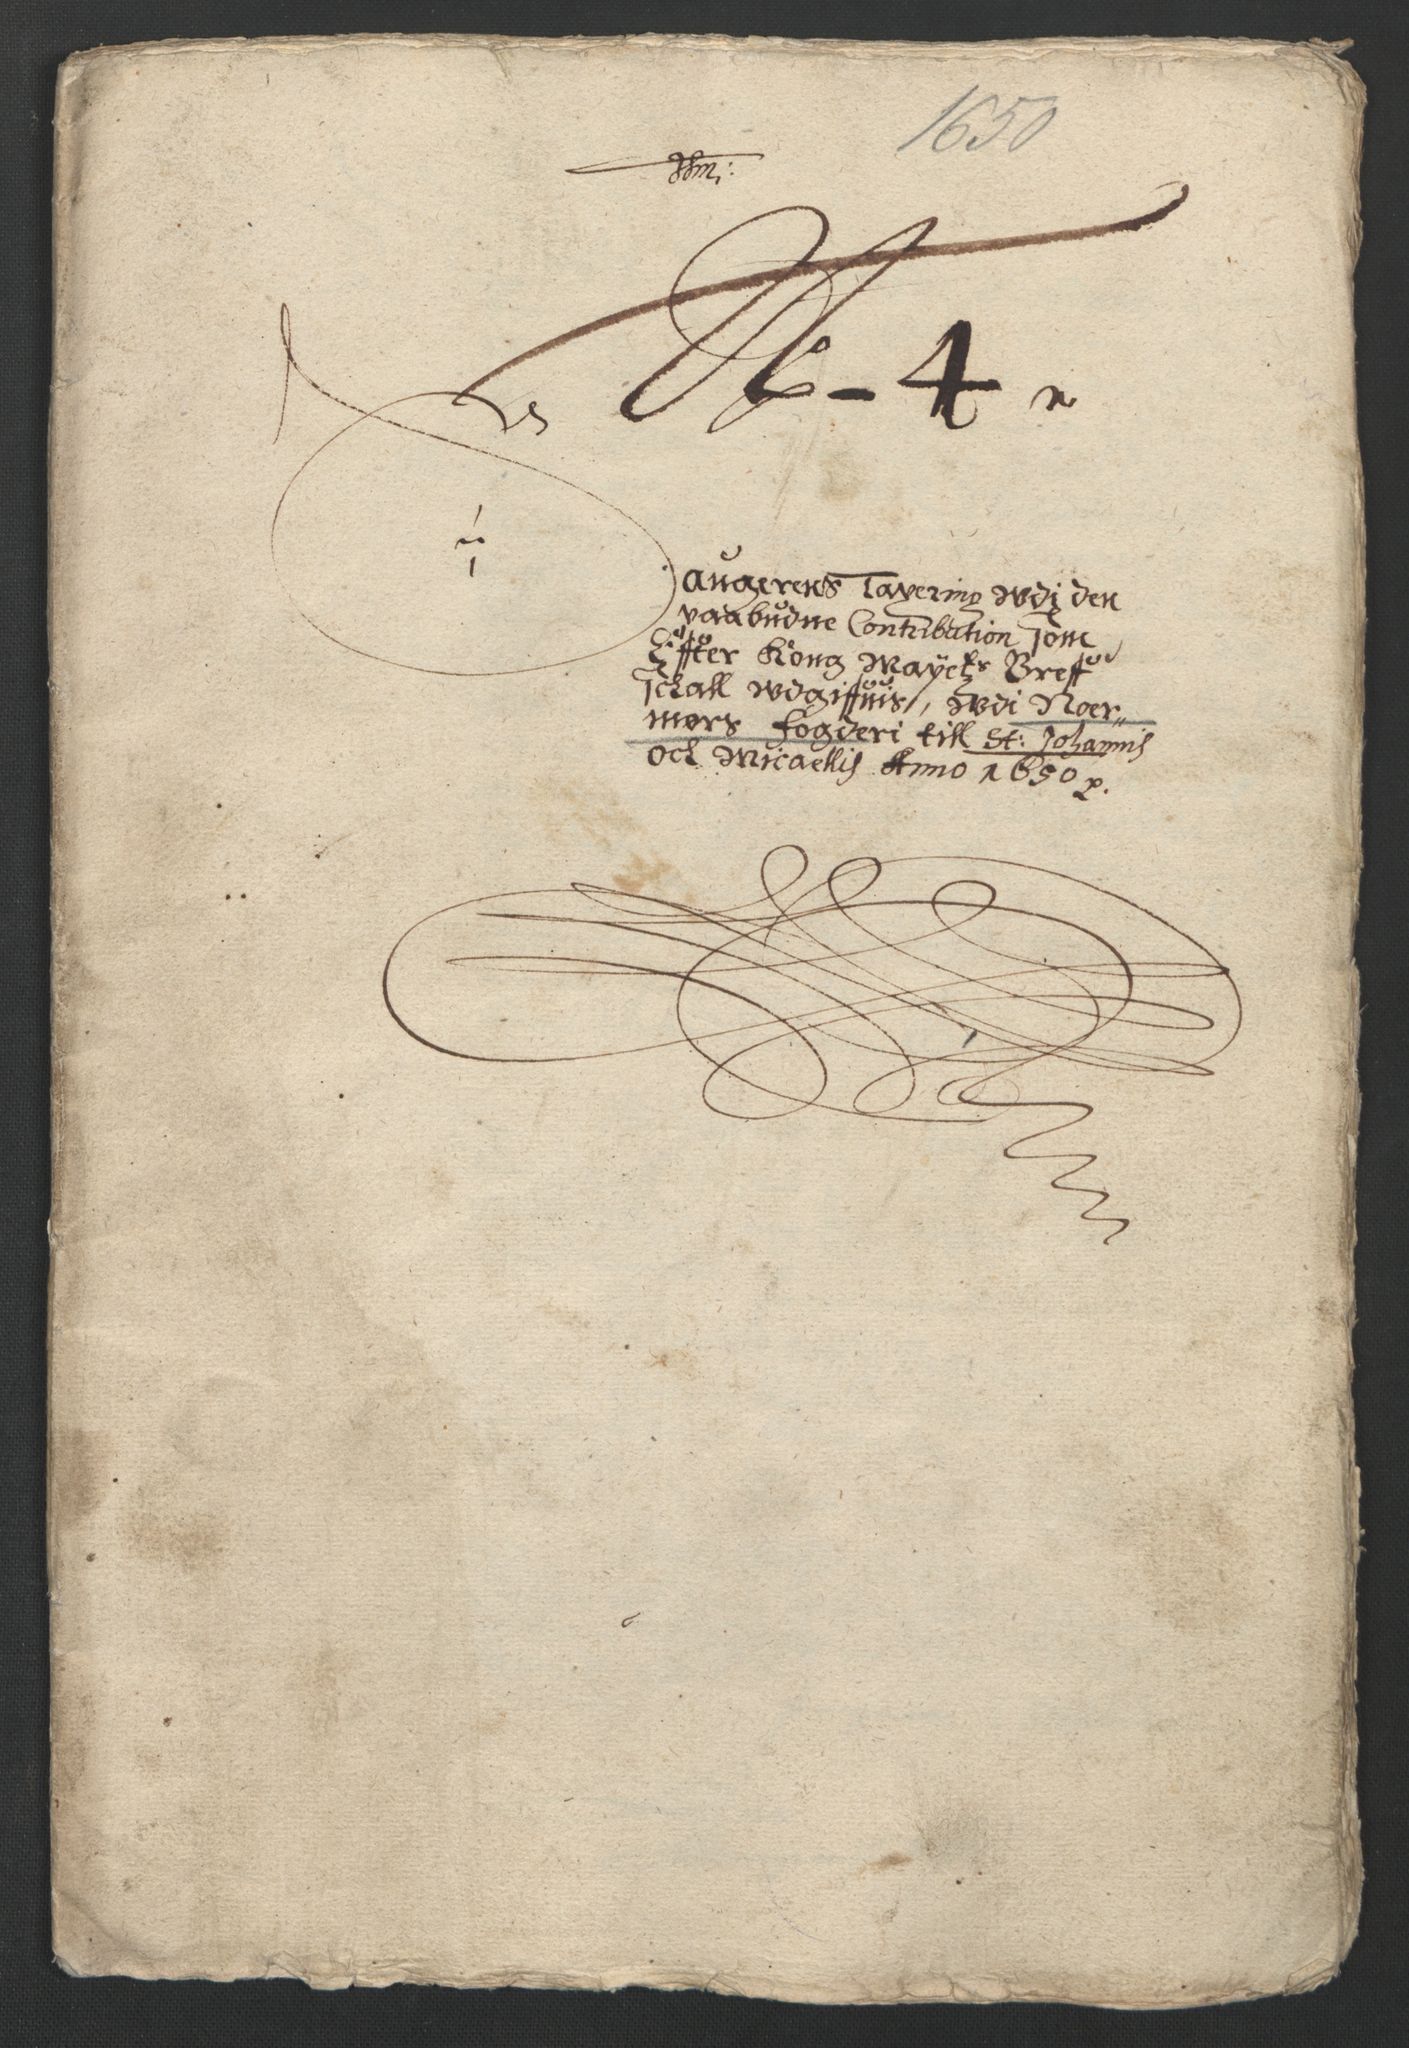 1650
N:o - 4
Laugerens Taxering wdj den
paabudne Contribution som
Effter Kong Maÿetz Breff
schall wdgiffuis, wdi Noer-
mørs fogderi till St: Johannis
och Micaelis Anno 1650